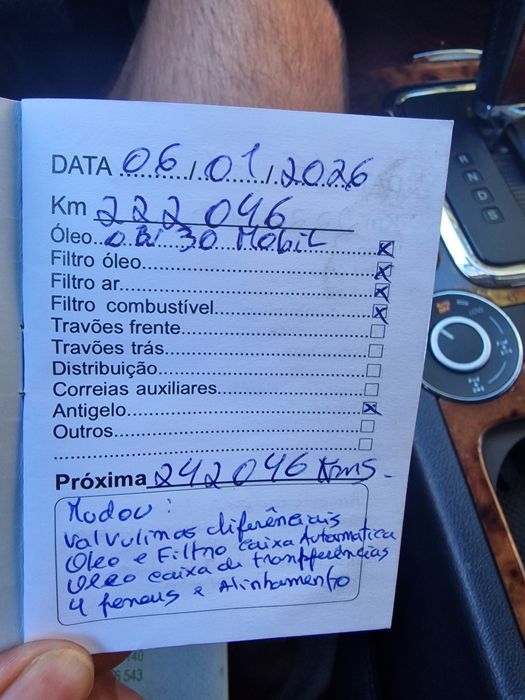 DATA 06/01/2026
Km 222 046
Óleo 30 Mobil
Filtro óleo
Filtro ar
Filtro combustível
Travões frente
Travões trás
Distribuição
Correias auxiliares
Antigelo
Outros
Próxima 242046 Kms.
Mudou:
Valvulinas diferênciais
Oleo e Filtro caixa Automatica
Oleo caixa de
4 peneus e Alinhamento
R
N
D
S
LOW
140
543